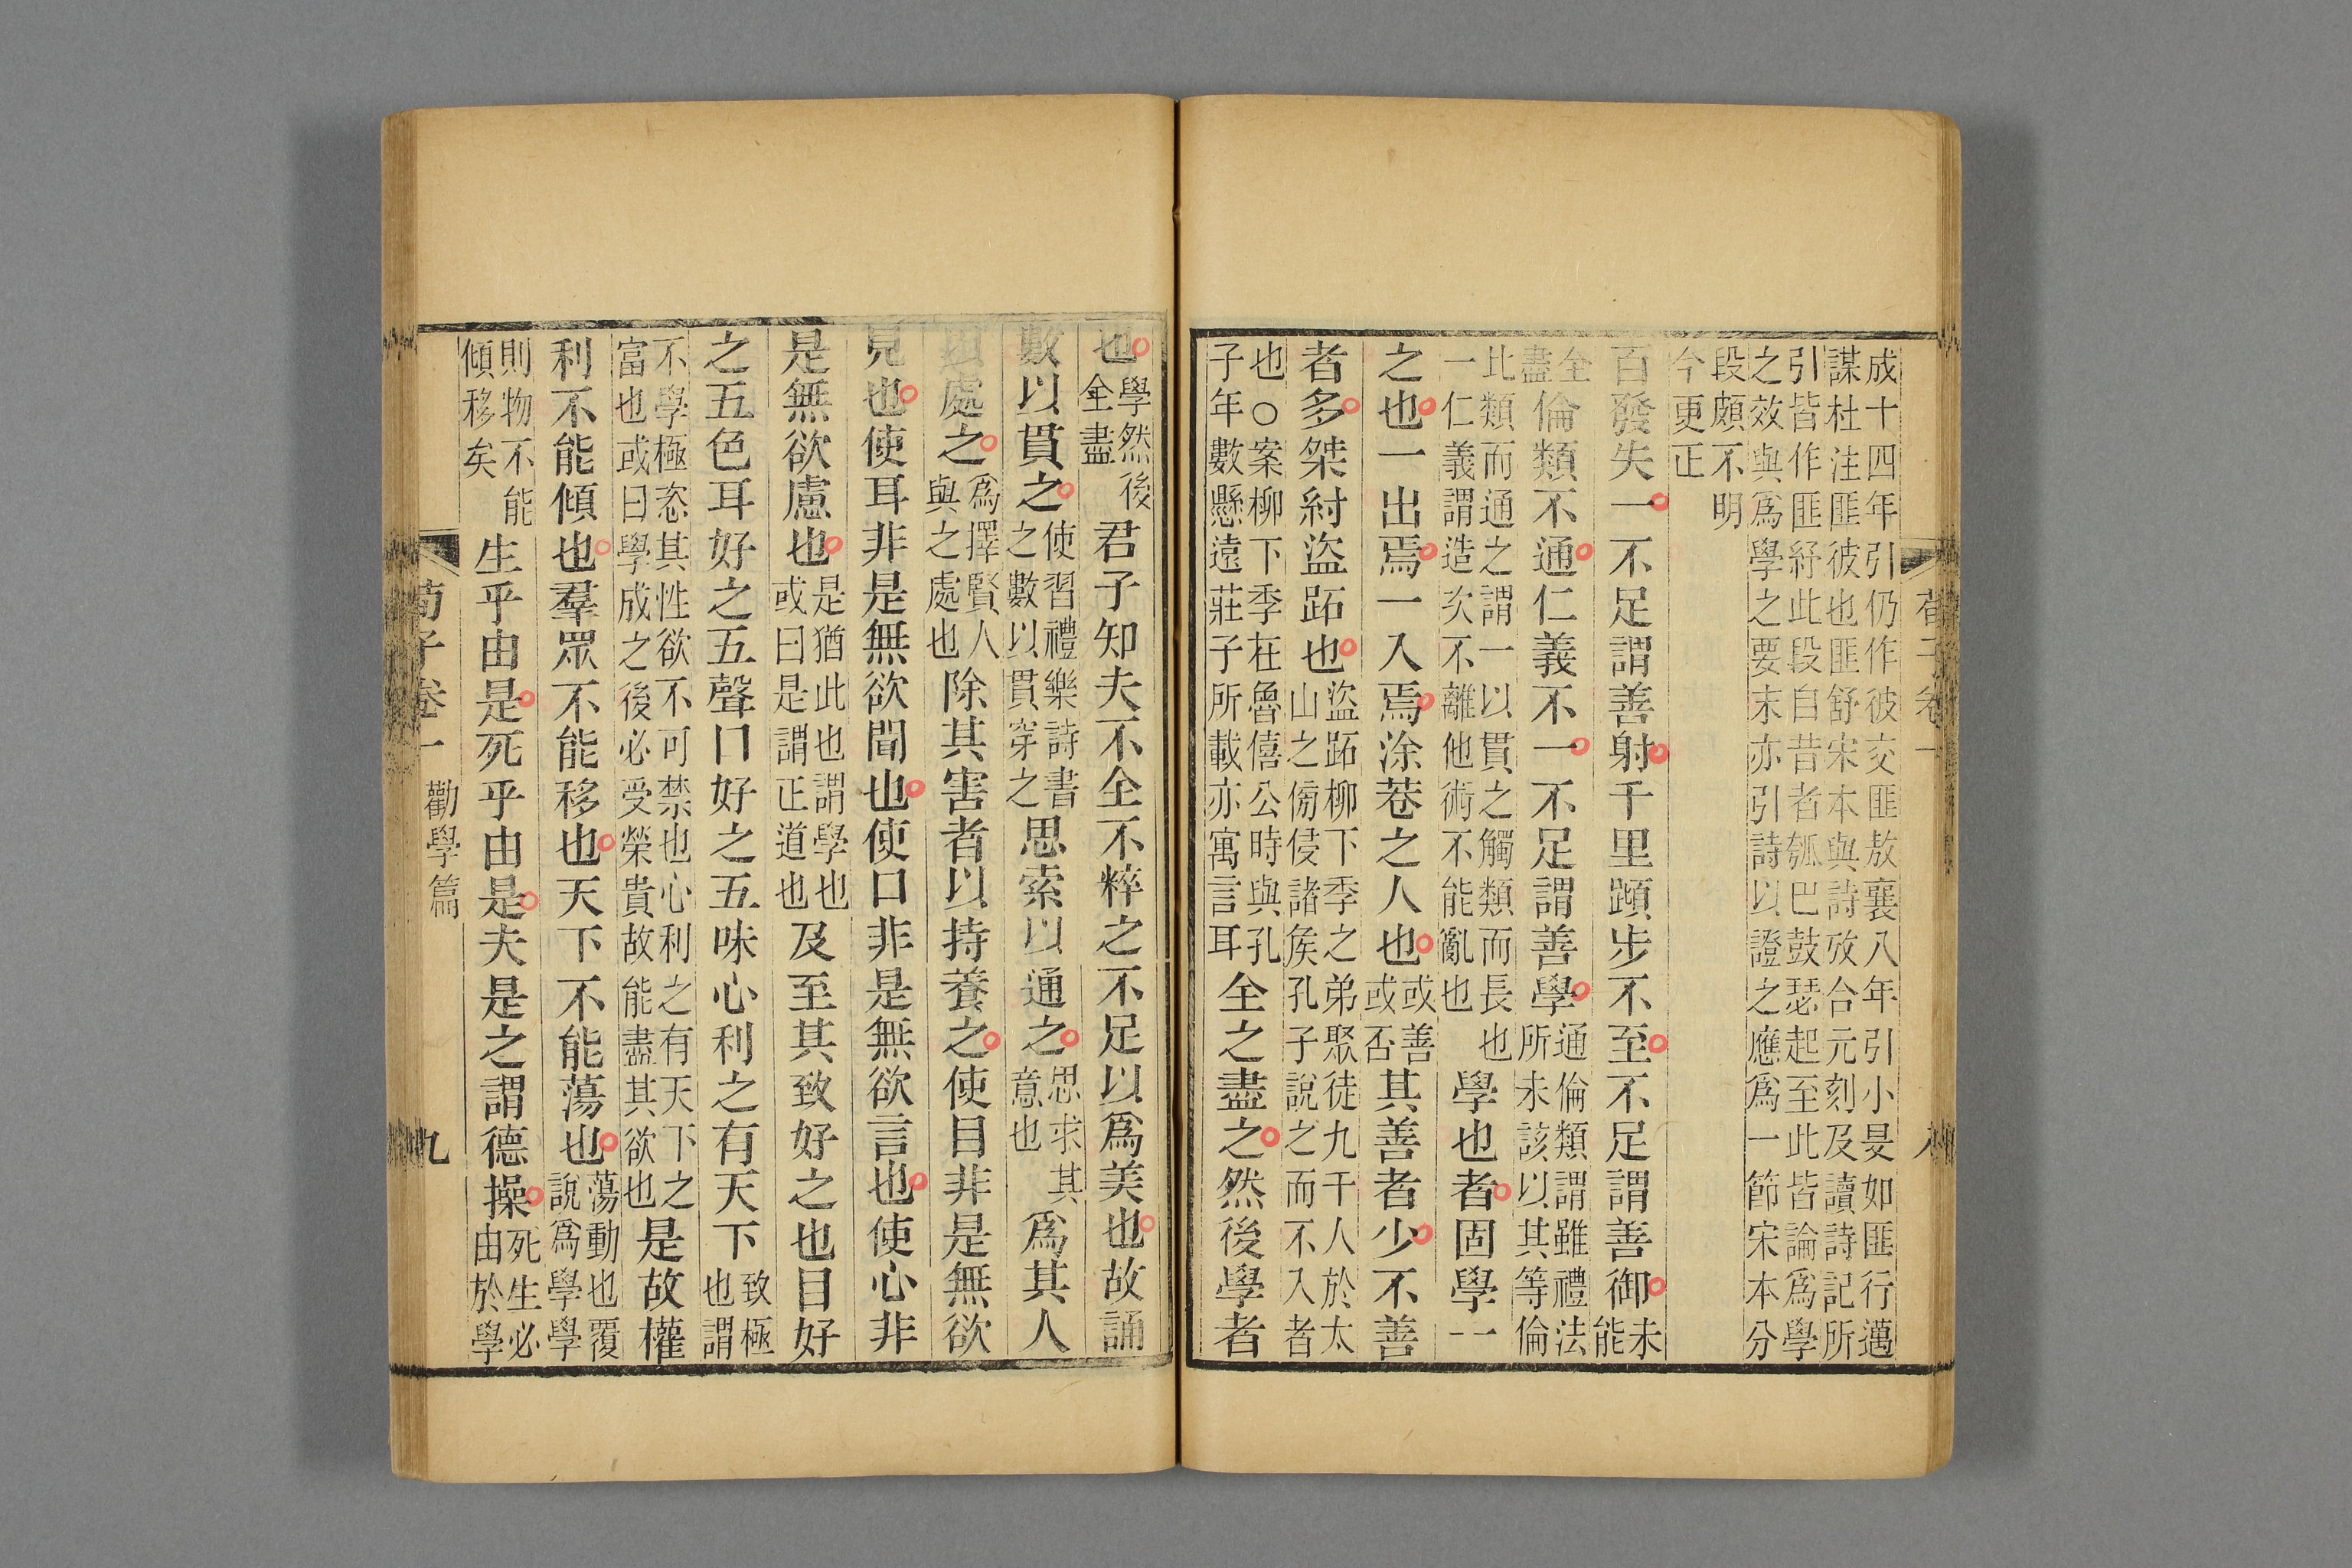 荀子卷一
八
成十四年引仍作彼交匪敖襄八年引小旻如匪行邁
謀杜注匪彼也匪舒宋本與詩攷合元刻及讀詩記所
引皆作匪紓此段自昔者瓠巴鼓瑟起至此皆論爲學
之效與爲學之要末亦引詩以證之應爲一節宋本分
段頗不明
今更正
百發失一不足謂善射千里蹞步不至不足謂善御未
能
全
盡倫類不通仁義不一不足謂善學通倫類謂雖禮法
所未該以其等倫
比類而通之謂一以貫之觸類而長也
一仁義謂造次不離他術不能亂也學也者固學一
之也一出焉一入焉涂巷之人也或善
或否其善者少不善
者多桀紂盜跖也盜跖柳下季之弟聚徒九千人於太
山之傍侵諸侯孔子說之而不入者
也○案柳下季在魯僖公時與孔
子年數懸遠莊子所載亦寓言耳全之盡之然後學者
也學然後
全盡君子知夫不全不粹之不足以爲美也故誦
數以貫之使習禮樂詩書
之數以貫穿之思索以通之思求其
意也爲其人
以處之爲擇賢人
與之處也除其害者以持養之使目非是無欲
見也使耳非是無欲聞也使口非是無欲言也使心非
是無欲慮也是猶此也謂學也
或曰是謂正道也及至其致好之也目好
之五色耳好之五聲口好之五味心利之有天下致極
也謂
不學極恣其性欲不可禁也心利之有天下之
富也或曰學成之後必受榮貴故能盡其欲也是故權
利不能傾也羣眾不能移也天下不能蕩也蕩動也覆
說爲學學
則物不能
傾移矣生乎由是死乎由是夫是之謂德操死生必
由於學
荀子卷一
勸學篇
九